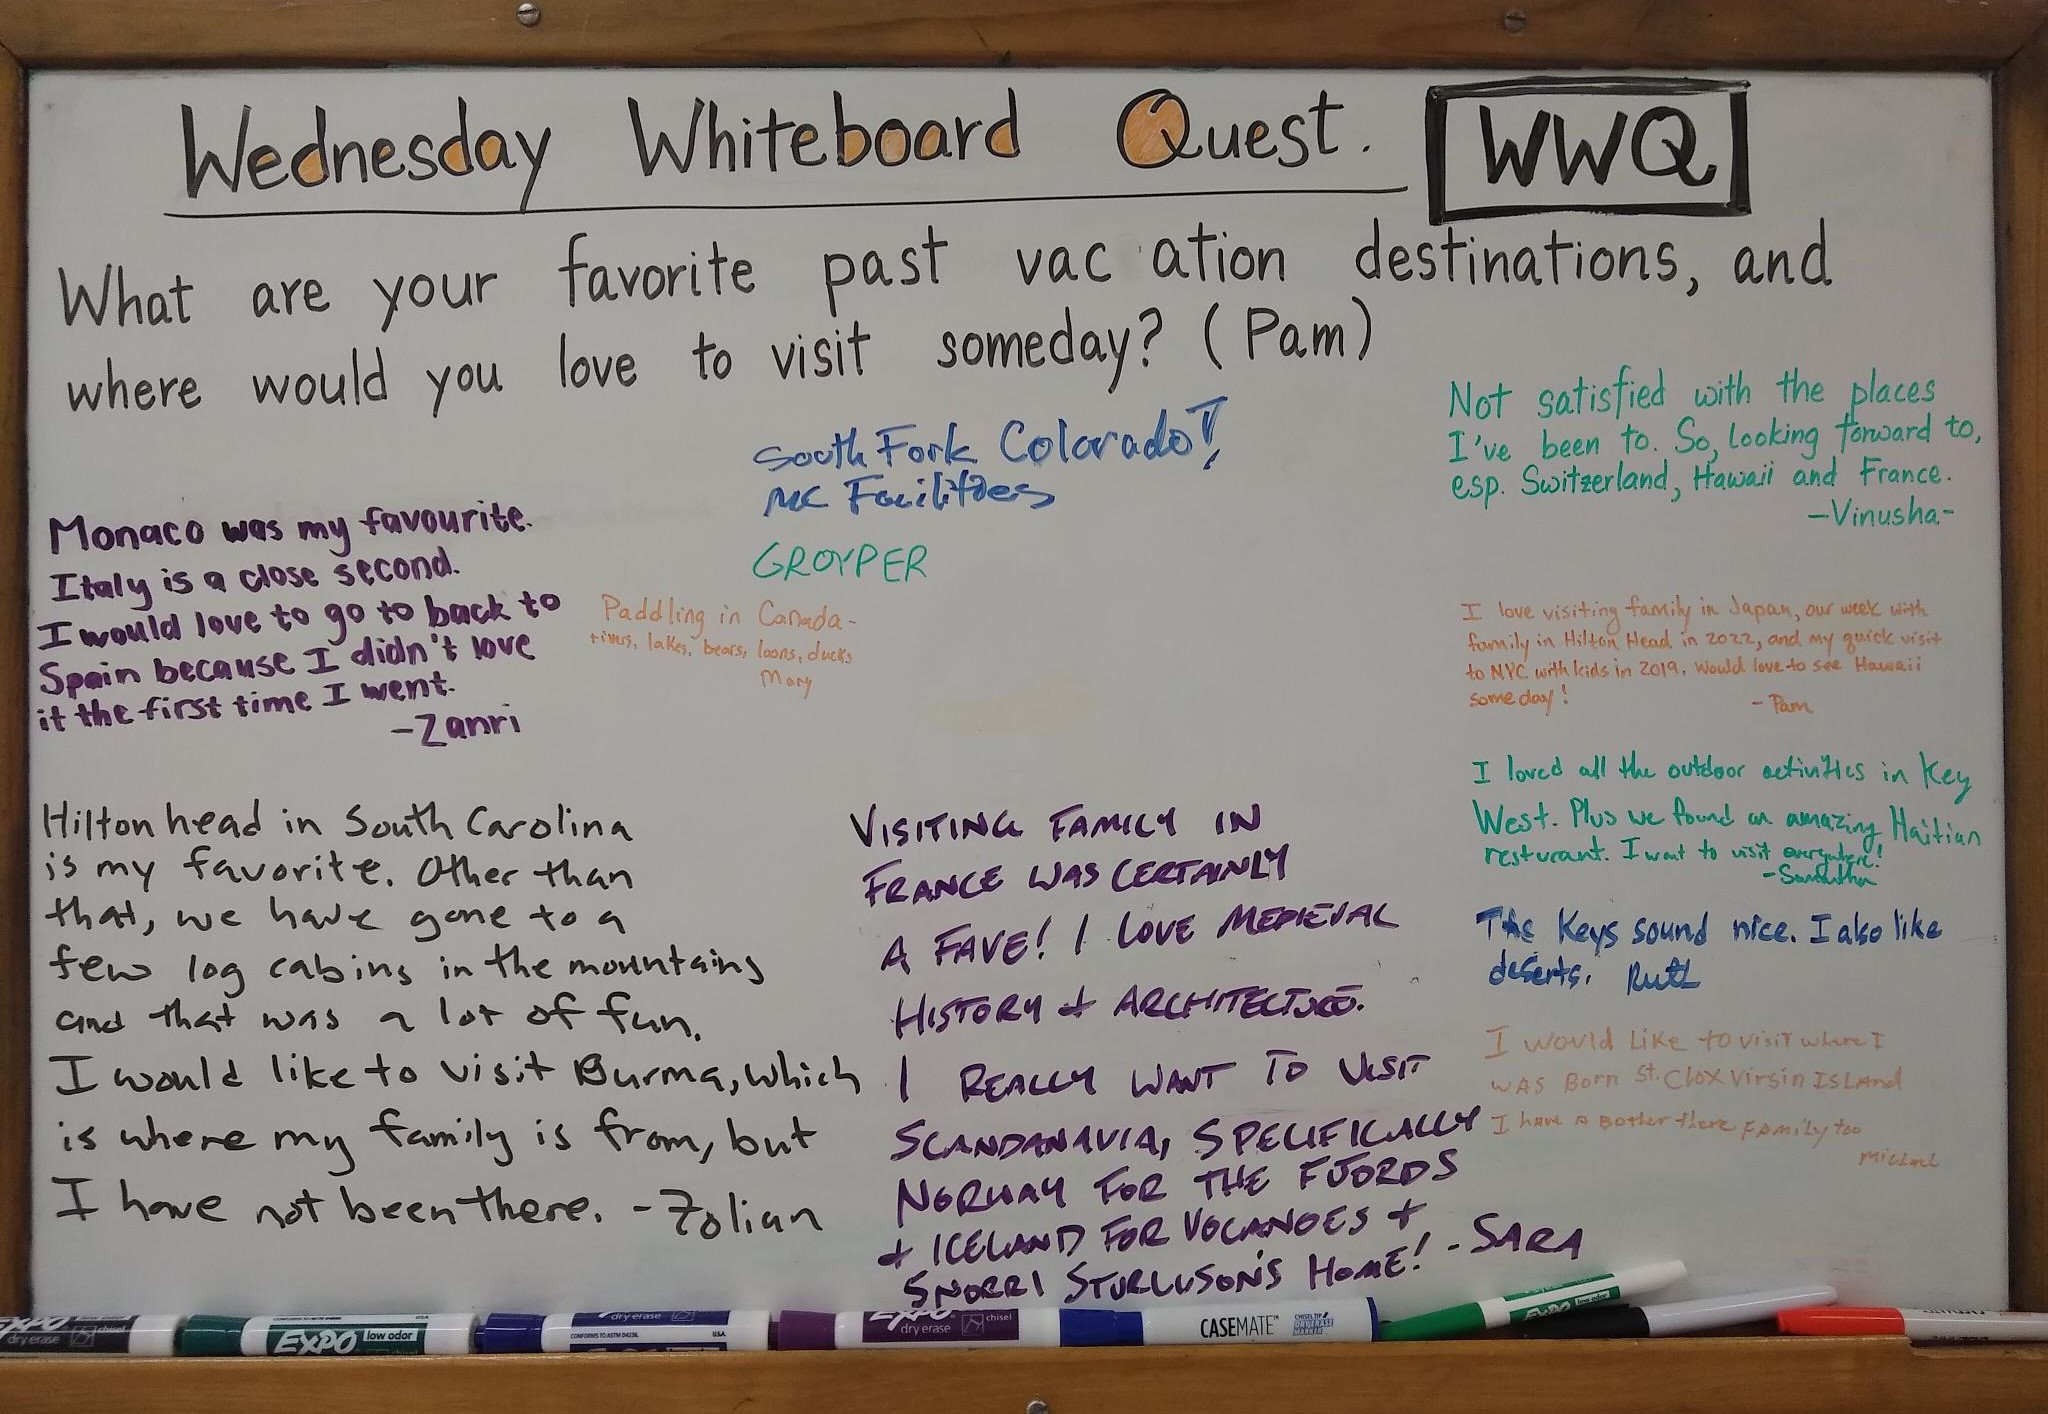 Wednesday Whiteboard Quest.
WWQ
What are your favorite past vacation destinations, and
where would you love to visit someday? (Pam)
South Fork Colorado!!
MC Facilities
GROYPER
Not satisfied with the places
I've been to. So, looking forward to,
esp. Switzerland, Hawaii and France.
-Vinusha-
Monaco was my favourite.
Italy is a close second.
I would love to go to back to
Spain because I didn't love
it the first time I went.
-Zanri
Paddling in Canada-
rivers, lakes, bears, loons, ducks
Mary
I love visiting family in Japan, our week with
family in Hilton Head in 2022, and my quick visit
to NYC with kids in 2019. Would love to see Hawaii
someday!
- Pam
I loved all the outdoor activities in Key
West. Plus we found an amazing Haitian
resturant. I want to visit everywhere!
-Samantha
The Keys sound nice. I also like
deserts. Ruth
I would Like to visit where I
WAS Born St. Clox Virgin ISLand
I have a Bother there Family too
Michael
Hilton head in South Carolina
is my favorite. Other than
that, we have gone to a
few log cabins in the mountains
and that was a lot of fun.
I would like to visit Burma, which
is where my family is from, but
I have not been there. - Zolian
VISITING FAMILY IN
FRANCE WAS CERTAINLY
A FAVE! I LOVE MEDIEVAL
HISTORY + ARCHITECTURE.
I REALLY WANT TO VISIT
SCANDANAVIA, SPECIFICALLY
NORWAY FOR THE FJORDS
+ ICELAND FOR VOCANOES +
SNORRI STURLUSON'S HOME! - SARA
EXPO dry erase chisel
EXPO low odor
CONFORMS TO ASTM D4236 U.S.A.
dry erase
EXPO dry erase chisel
CASEMATE CHISEL TIP DRY ERASE MARKER
EXPO low odor